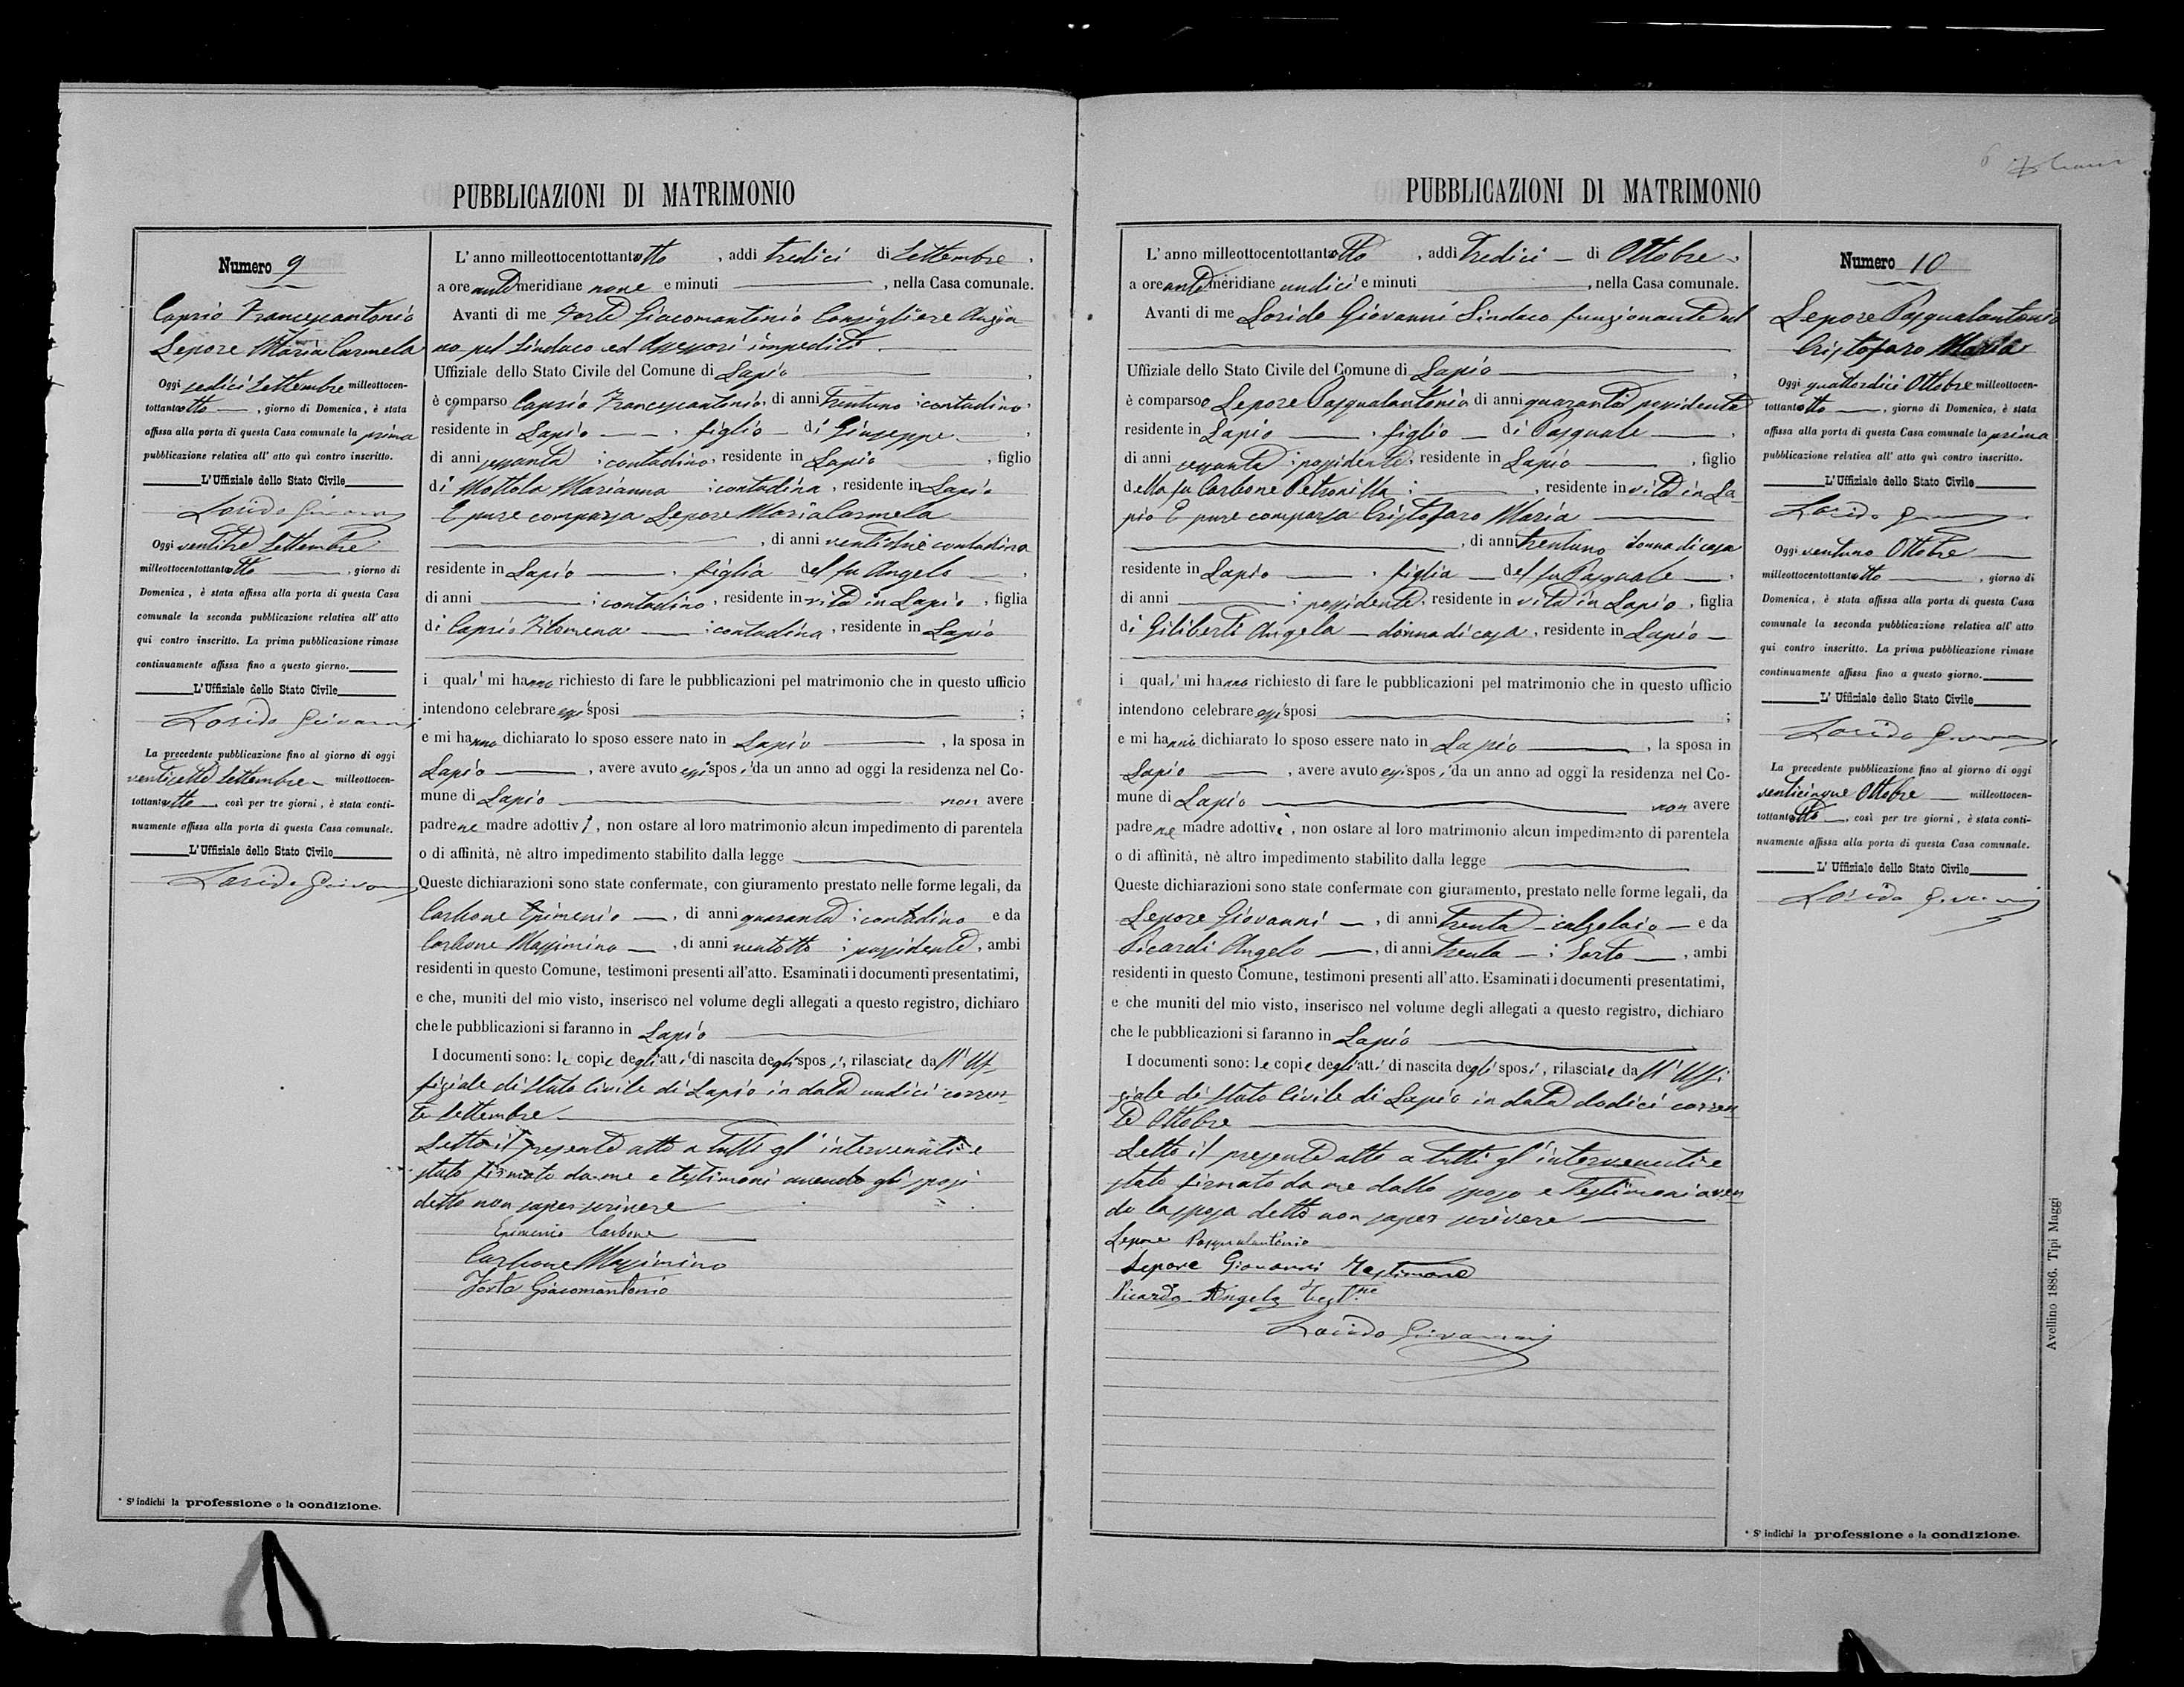 PUBBLICAZIONI DI MATRIMONIO
Numero 9
Caprio Francescantonio
Lepore Maria Carmela
Oggi sedici Settembre milleottocen-
tottantotto, giorno di Domenica, è stata
affissa alla porta di questa Casa comunale la prima
pubblicazione relativa all' atto quì contro inscritto.
L'Uffiziale dello Stato Civile
Lorido Giovanni
Oggi ventitre Settembre
milleottocentottantotto, giorno di
Domenica, è stata affissa alla porta di questa Casa
comunale la seconda pubblicazione relativa all' atto
qui contro inscritto. La prima pubblicazione rimase
continuamente affissa fino a questo giorno.
L'Uffiziale dello Stato Civile
Lorido Giovanni
La precedente pubblicazione fino al giorno di oggi
ventisette Settembre milleottocen-
tottantotto, così per tre giorni, è stata conti-
nuamente affissa alla porta di questa Casa comunale.
L'Uffiziale dello Stato Civile
Lorido Giovanni
* S' indichi la professione o la condizione.
L' anno milleottocentottantotto, addi tredici di Settembre,
a ore antemeridiane nove e minuti , nella Casa comunale.
Avanti di me Forte Giacomantonio Consigliere Anzia
no pel Sindaco ed Assessori impediti
Uffiziale dello Stato Civile del Comune di Lapio,
è comparso Caprio Francescantonio, di anni trentuno contadino
residente in Lapio, figlio di Giuseppe,
di anni sessanta contadino, residente in Lapio, figlio
di Mottola Marianna contadina, residente in Lapio
E pure comparsa Lepore Maria Carmela
, di anni ventidue contadina
residente in Lapio, figlia del fu Angelo,
di anni ; contadino, residente in vita in Lapio, figlia
di Caprio Filomena contadina, residente in Lapio
i quali mi hanno richiesto di fare le pubblicazioni pel matrimonio che in questo ufficio
intendono celebrare essi sposi ;
e mi hanno dichiarato lo sposo essere nato in Lapio, la sposa in
Lapio, avere avuto essi sposi da un anno ad oggi la residenza nel Co-
mune di Lapio non avere
padre ne madre adottivi, non ostare al loro matrimonio alcun impedimento di parentela
o di affinità, nè altro impedimento stabilito dalla legge
Queste dichiarazioni sono state confermate, con giuramento prestato nelle forme legali, da
Carbone Epimenio, di anni quaranta contadino e da
Carbone Massimino, di anni ventotto possidente, ambi
residenti in questo Comune, testimoni presenti all'atto. Esaminati i documenti presentatimi,
e che, muniti del mio visto, inserisco nel volume degli allegati a questo registro, dichiaro
che le pubblicazioni si faranno in Lapio
I documenti sono: le copie degli atti di nascita degli sposi, rilasciate dall' Uf
fiziale di Stato Civile di Lapio in data undici corren
te Settembre
Letto il presente atto a tutti gl' intervenuti e
stato firmato da me e testimoni avendo gli sposi
detto non saper scrivere
Epimenio Carbone
Carbone Massimino
Forte Giacomantonio
PUBBLICAZIONI DI MATRIMONIO
L' anno milleottocentottantotto, addi tredici di Ottobre,
a ore antemeridiane undici e minuti , nella Casa comunale.
Avanti di me Lorido Giovanni Sindaco funzionante ed
Uffiziale dello Stato Civile del Comune di Lapio,
è comparso Lepore Pasqualantonio di anni quaranta possidente
residente in Lapio, figlio di Pasquale,
di anni possidente, residente in Lapio, figlio
della fu Carbone Petronilla ; , residente in vita in La
pio E pure comparsa Cristofaro Maria
, di anni trentuno donna di casa
residente in Lapio, figlia del fu Pasquale,
di anni ; possidente, residente in vita in Lapio, figlia
di Giliberti Angela donna di casa, residente in Lapio
i quali mi hanno richiesto di fare le pubblicazioni pel matrimonio che in questo ufficio
intendono celebrare essi sposi ;
e mi hanno dichiarato lo sposo essere nato in Lapio, la sposa in
Lapio, avere avuto essi sposi da un anno ad oggi la residenza nel Co-
mune di Lapio non avere
padre ne madre adottivi, non ostare al loro matrimonio alcun impedimento di parentela
o di affinità, nè altro impedimento stabilito dalla legge
Queste dichiarazioni sono state confermate con giuramento, prestato nelle forme legali, da
Lepore Giovanni, di anni trenta calzolaio e da
Picardi Angelo, di anni trenta ; Sarto, ambi
residenti in questo Comune, testimoni presenti all' atto. Esaminati i documenti presentatimi,
e che muniti del mio visto, inserisco nel volume degli allegati a questo registro, dichiaro
che le pubblicazioni si faranno in Lapio
I documenti sono: le copie degli atti di nascita degli sposi, rilasciate dall' Uffi
ziale di Stato Civile di Lapio in data dodici corren
te Ottobre
Letto il presente atto a tutti gl' intervenuti e
stato firmato da me dallo sposo e testimoni aven
do la sposa detto non saper scrivere
Lepore Pasqualantonio
Lepore Giovanni Testimone
Picardo Angelo Test.ne
Lorido Giovanni
Numero 10
Lepore Pasqualantonio
Cristofaro Maria
Oggi quattordici Ottobre milleottocen-
tottantotto, giorno di Domenica, è stata
affissa alla porta di questa Casa comunale la prima
pubblicazione relativa all' atto quì contro inscritto.
L'Uffiziale dello Stato Civile
Lorido Giovanni
Oggi ventuno Ottobre
milleottocentottantotto, giorno di
Domenica, è stata affissa alla porta di questa Casa
comunale la seconda pubblicazione relativa all' atto
qui contro inscritto. La prima pubblicazione rimase
continuamente affissa fino a questo giorno.
L' Uffiziale dello Stato Civile
Lorido Giovanni
La precedente pubblicazione fino al giorno di oggi
venticinque Ottobre milleottocen-
tottantotto, così per tre giorni, è stata conti-
nuamente affissa alla porta di questa Casa comunale.
L' Uffiziale dello Stato Civile
Lorido Giovanni
* S' indichi la professione o la condizione.
Avellino 1886. Tipi Maggi